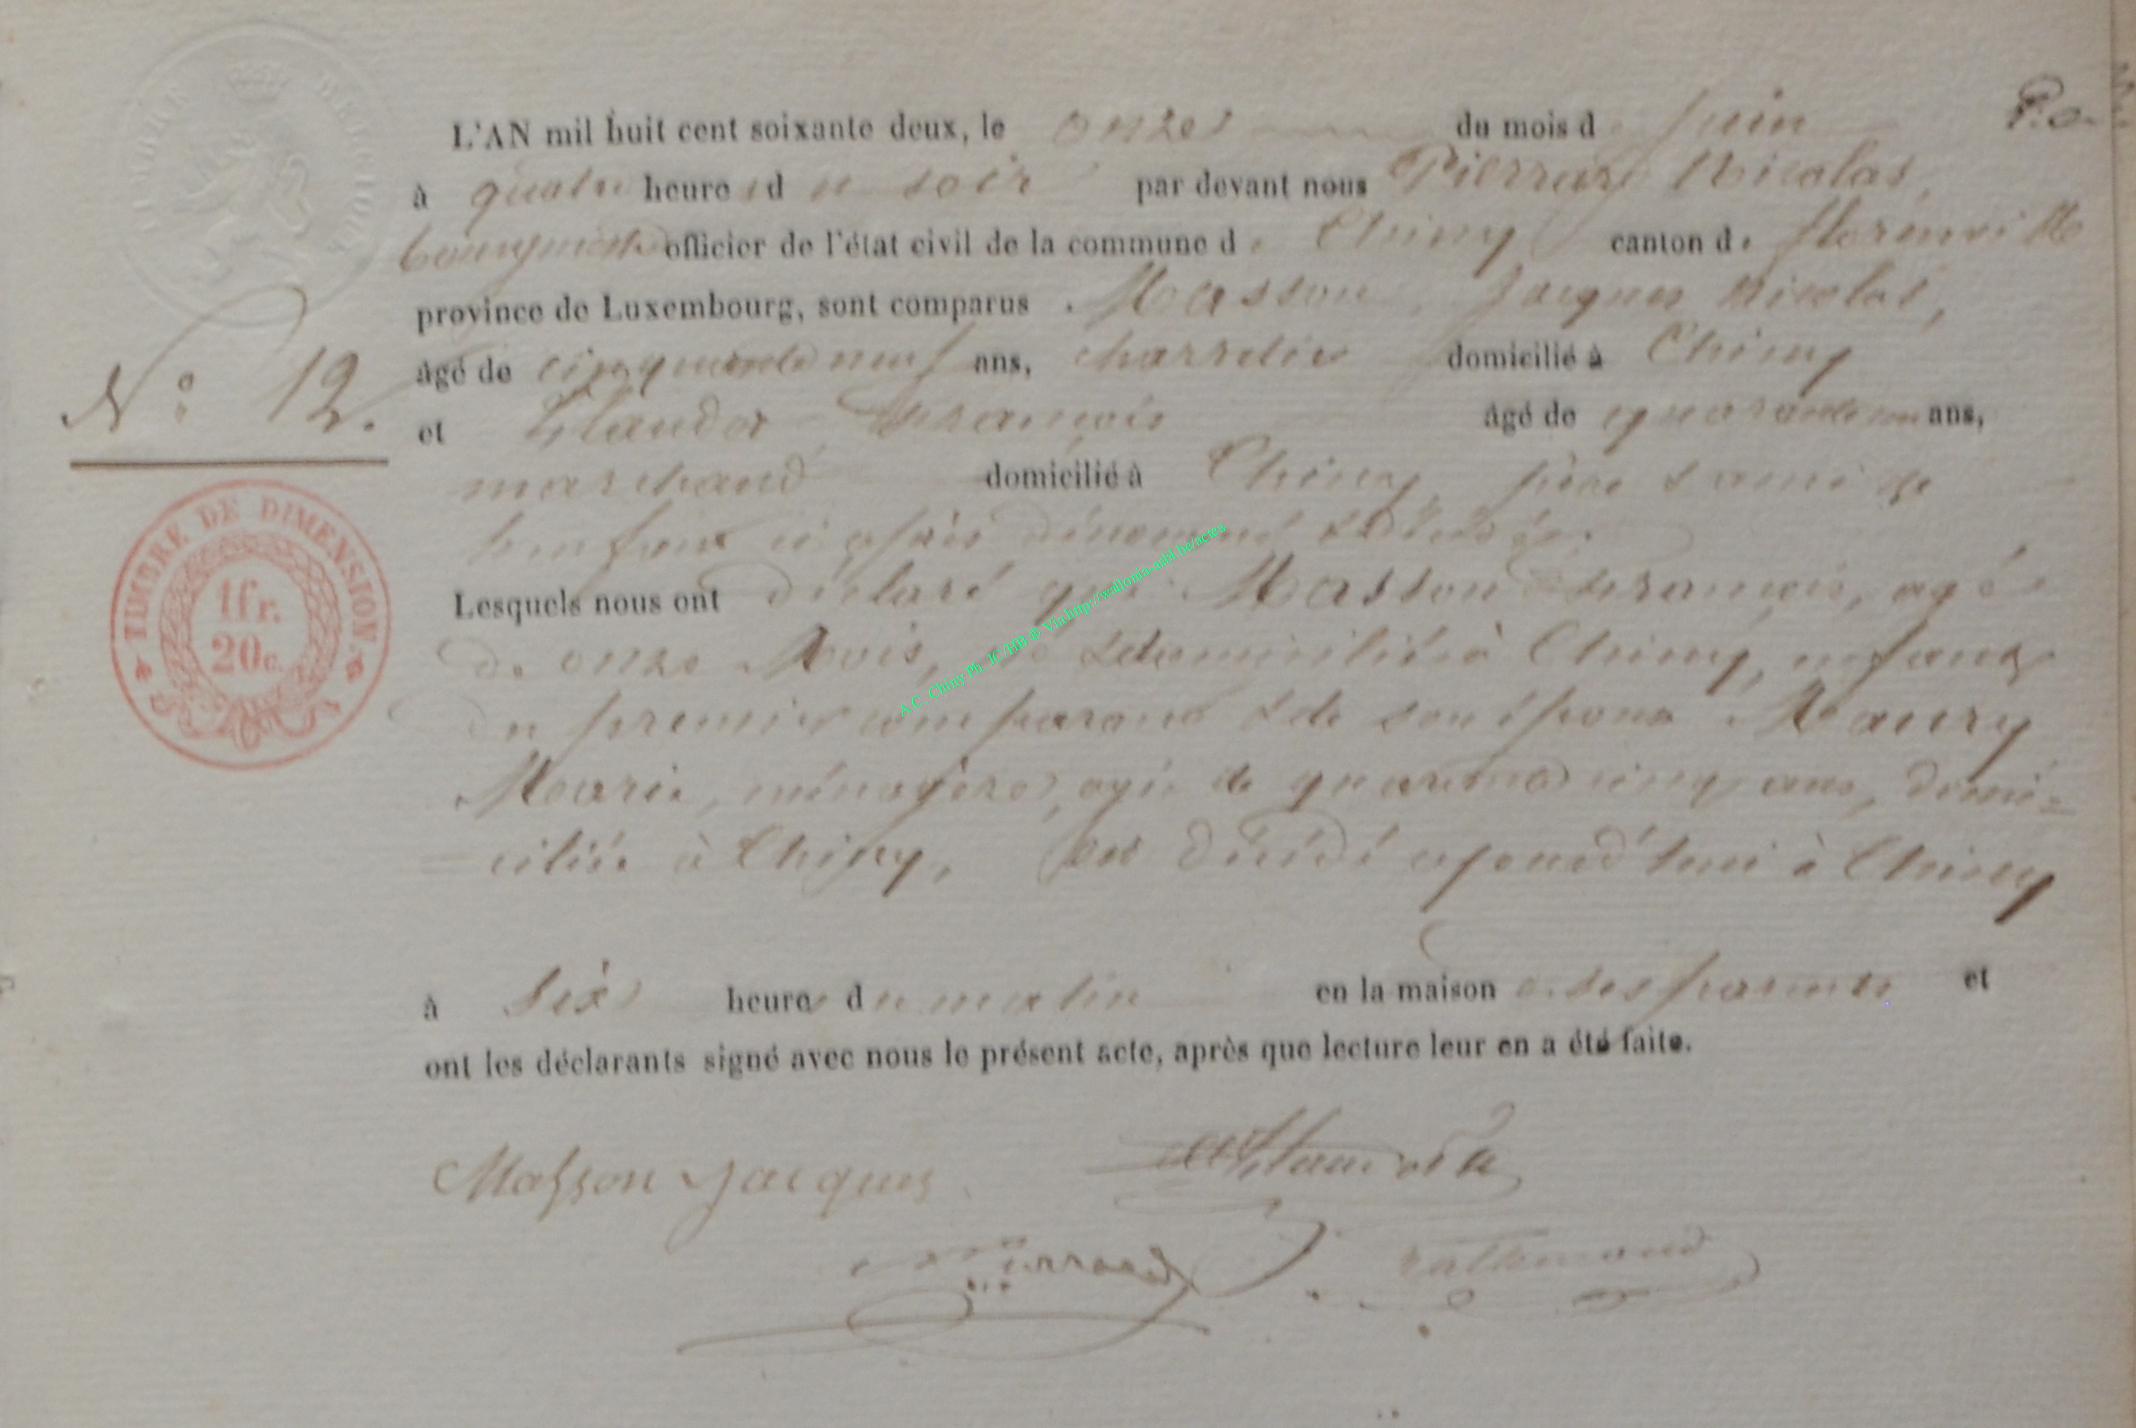 TIMBRE BELGIQUE
L'AN mil huit cent soixante deux, le onze du mois d juin
à quatre heures du soir par devant nous Pierrard Nicolas,
bourgmestre officier de l'état civil de la commune de Chiny canton de florenville
province de Luxembourg, sont comparus Masson, Jacques Nicolas,
âgé de cinquante neuf ans, charretier domicilié à Chiny
N° 12.
et François âgé de ans,
marchand domicilié à Chiny, père & ami de
l'enfant ci après dénommé
Lesquels nous ont déclaré que Masson François, agé
de onze Mois, domicilié à Chiny, enfant
du premier comparant & de son épouse Maury
Marie, ménagère, agée de quarante cinq ans, domi-
-ciliée à Chiny, est décédé aujourd'hui à Chiny
à six heures du matin en la maison de ses parents et
ont les déclarants signé avec nous le présent acte, après que lecture leur en a été faite.
TIMBRE DE DIMENSION
1fr.
20c.
A.C. Chiny Ph. JC/HB @ Via http://wallonia-asbl.be/actes
Masson Jacques